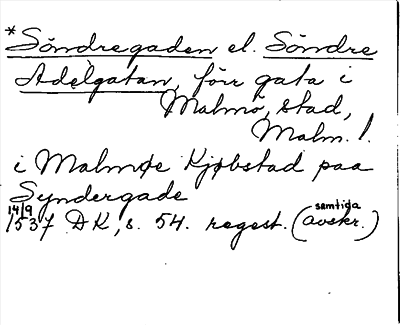 *Söndregaden el. Söndre
Adelgatan, förr gata i
Malmö, stad,
Malm. l.
i Malmøe Kjøbstad paa
Syndergade
14/9 1537 DK, s. 54. regest. (samtida avskr.)